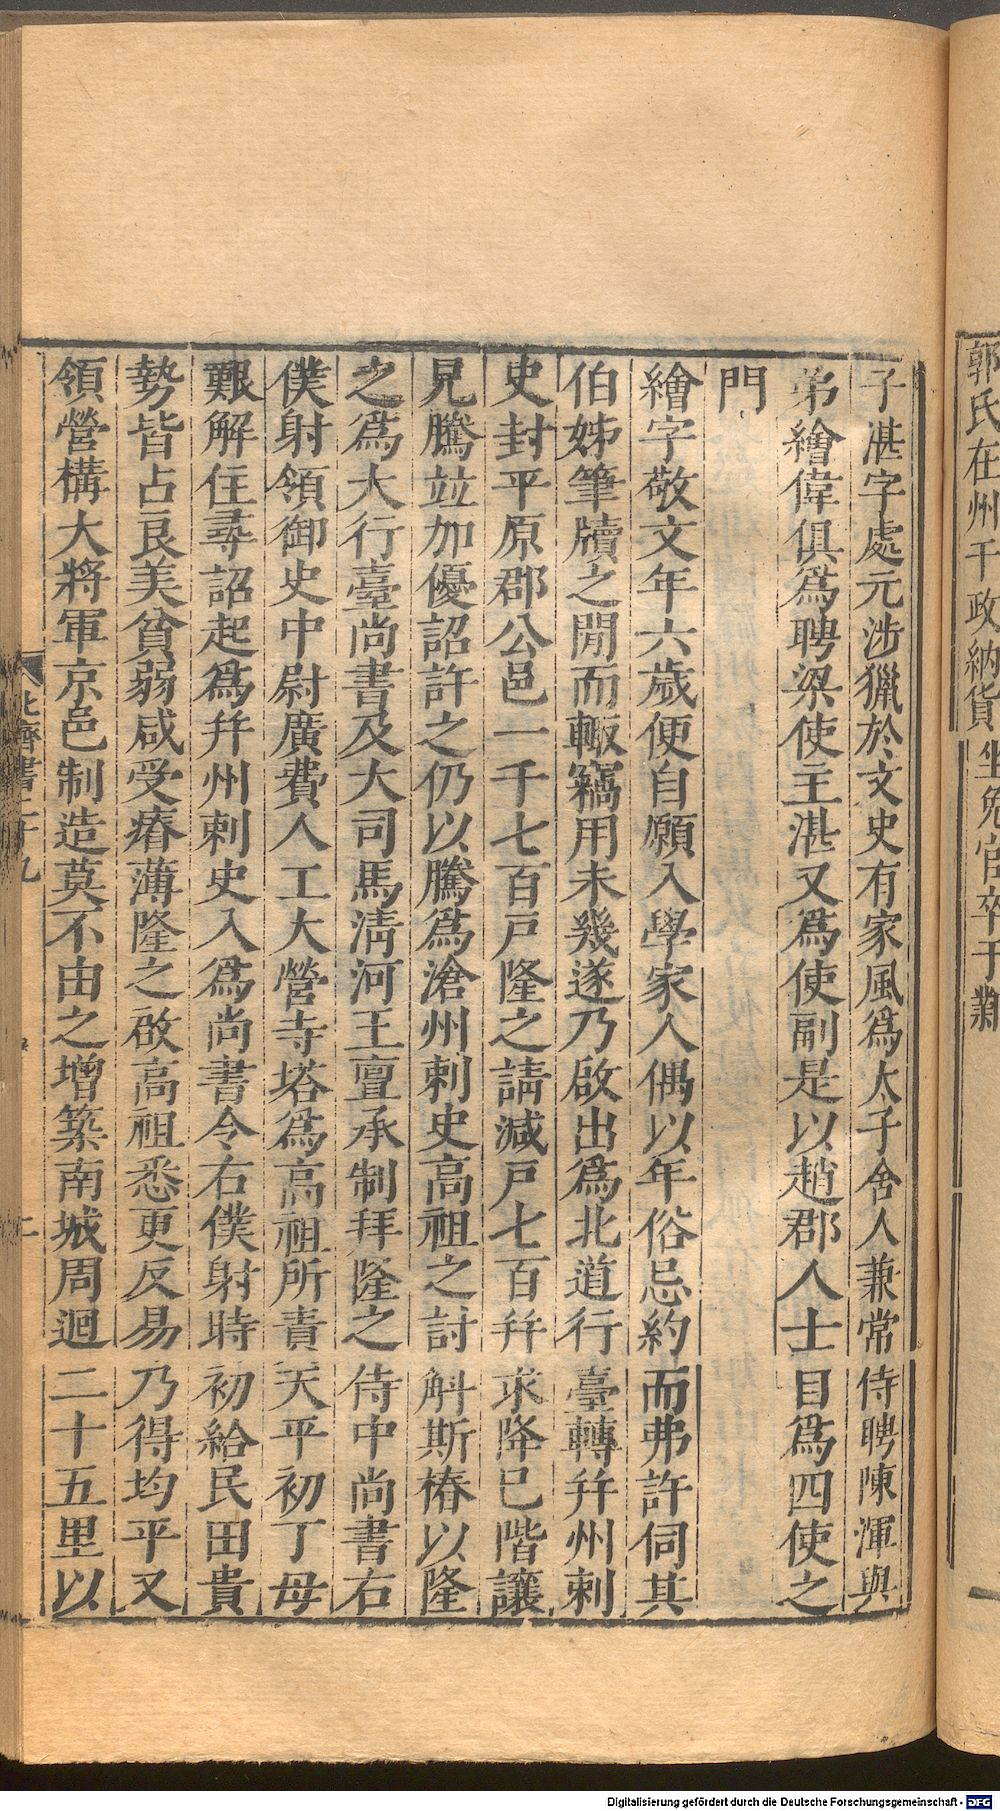 郭氏在州干政納貨坐免官卒于
子湛字處元涉獵於文史有家風爲太子舍人兼常侍聘陳渾與
弟繪偉俱爲聘梁使主湛又爲使副是以趙郡人士目爲四使之
門
繪字敬文年六歲便自願入學家人偶以年俗忌約而弗許伺其
伯姊筆牘之閒而輙竊用未幾遂乃啟出爲北道行臺轉幷州刺
史封平原郡公邑一千七百戸隆之請減戸七百幷求降巳階讓
兄騰竝加優詔許之仍以騰爲滄州刺史高祖之討斛斯椿以隆
之爲大行臺尚書及大司馬淸河王亶承制拜隆之侍中尚書右
僕射領御史中尉廣費人工大營寺塔爲高祖所責天平初丁母
艱解任尋詔起爲幷州刺史入爲尚書令右僕射時初給民田貴
勢皆占良美貧弱咸受瘠薄隆之啟高祖悉更反易乃得均平又
領營構大將軍京邑制造莫不由之增築南城周迴二十五里以
北齊書二十九
二
Digitalisierung gefördert durch die Deutsche Forschungsgemeinschaft - DFG